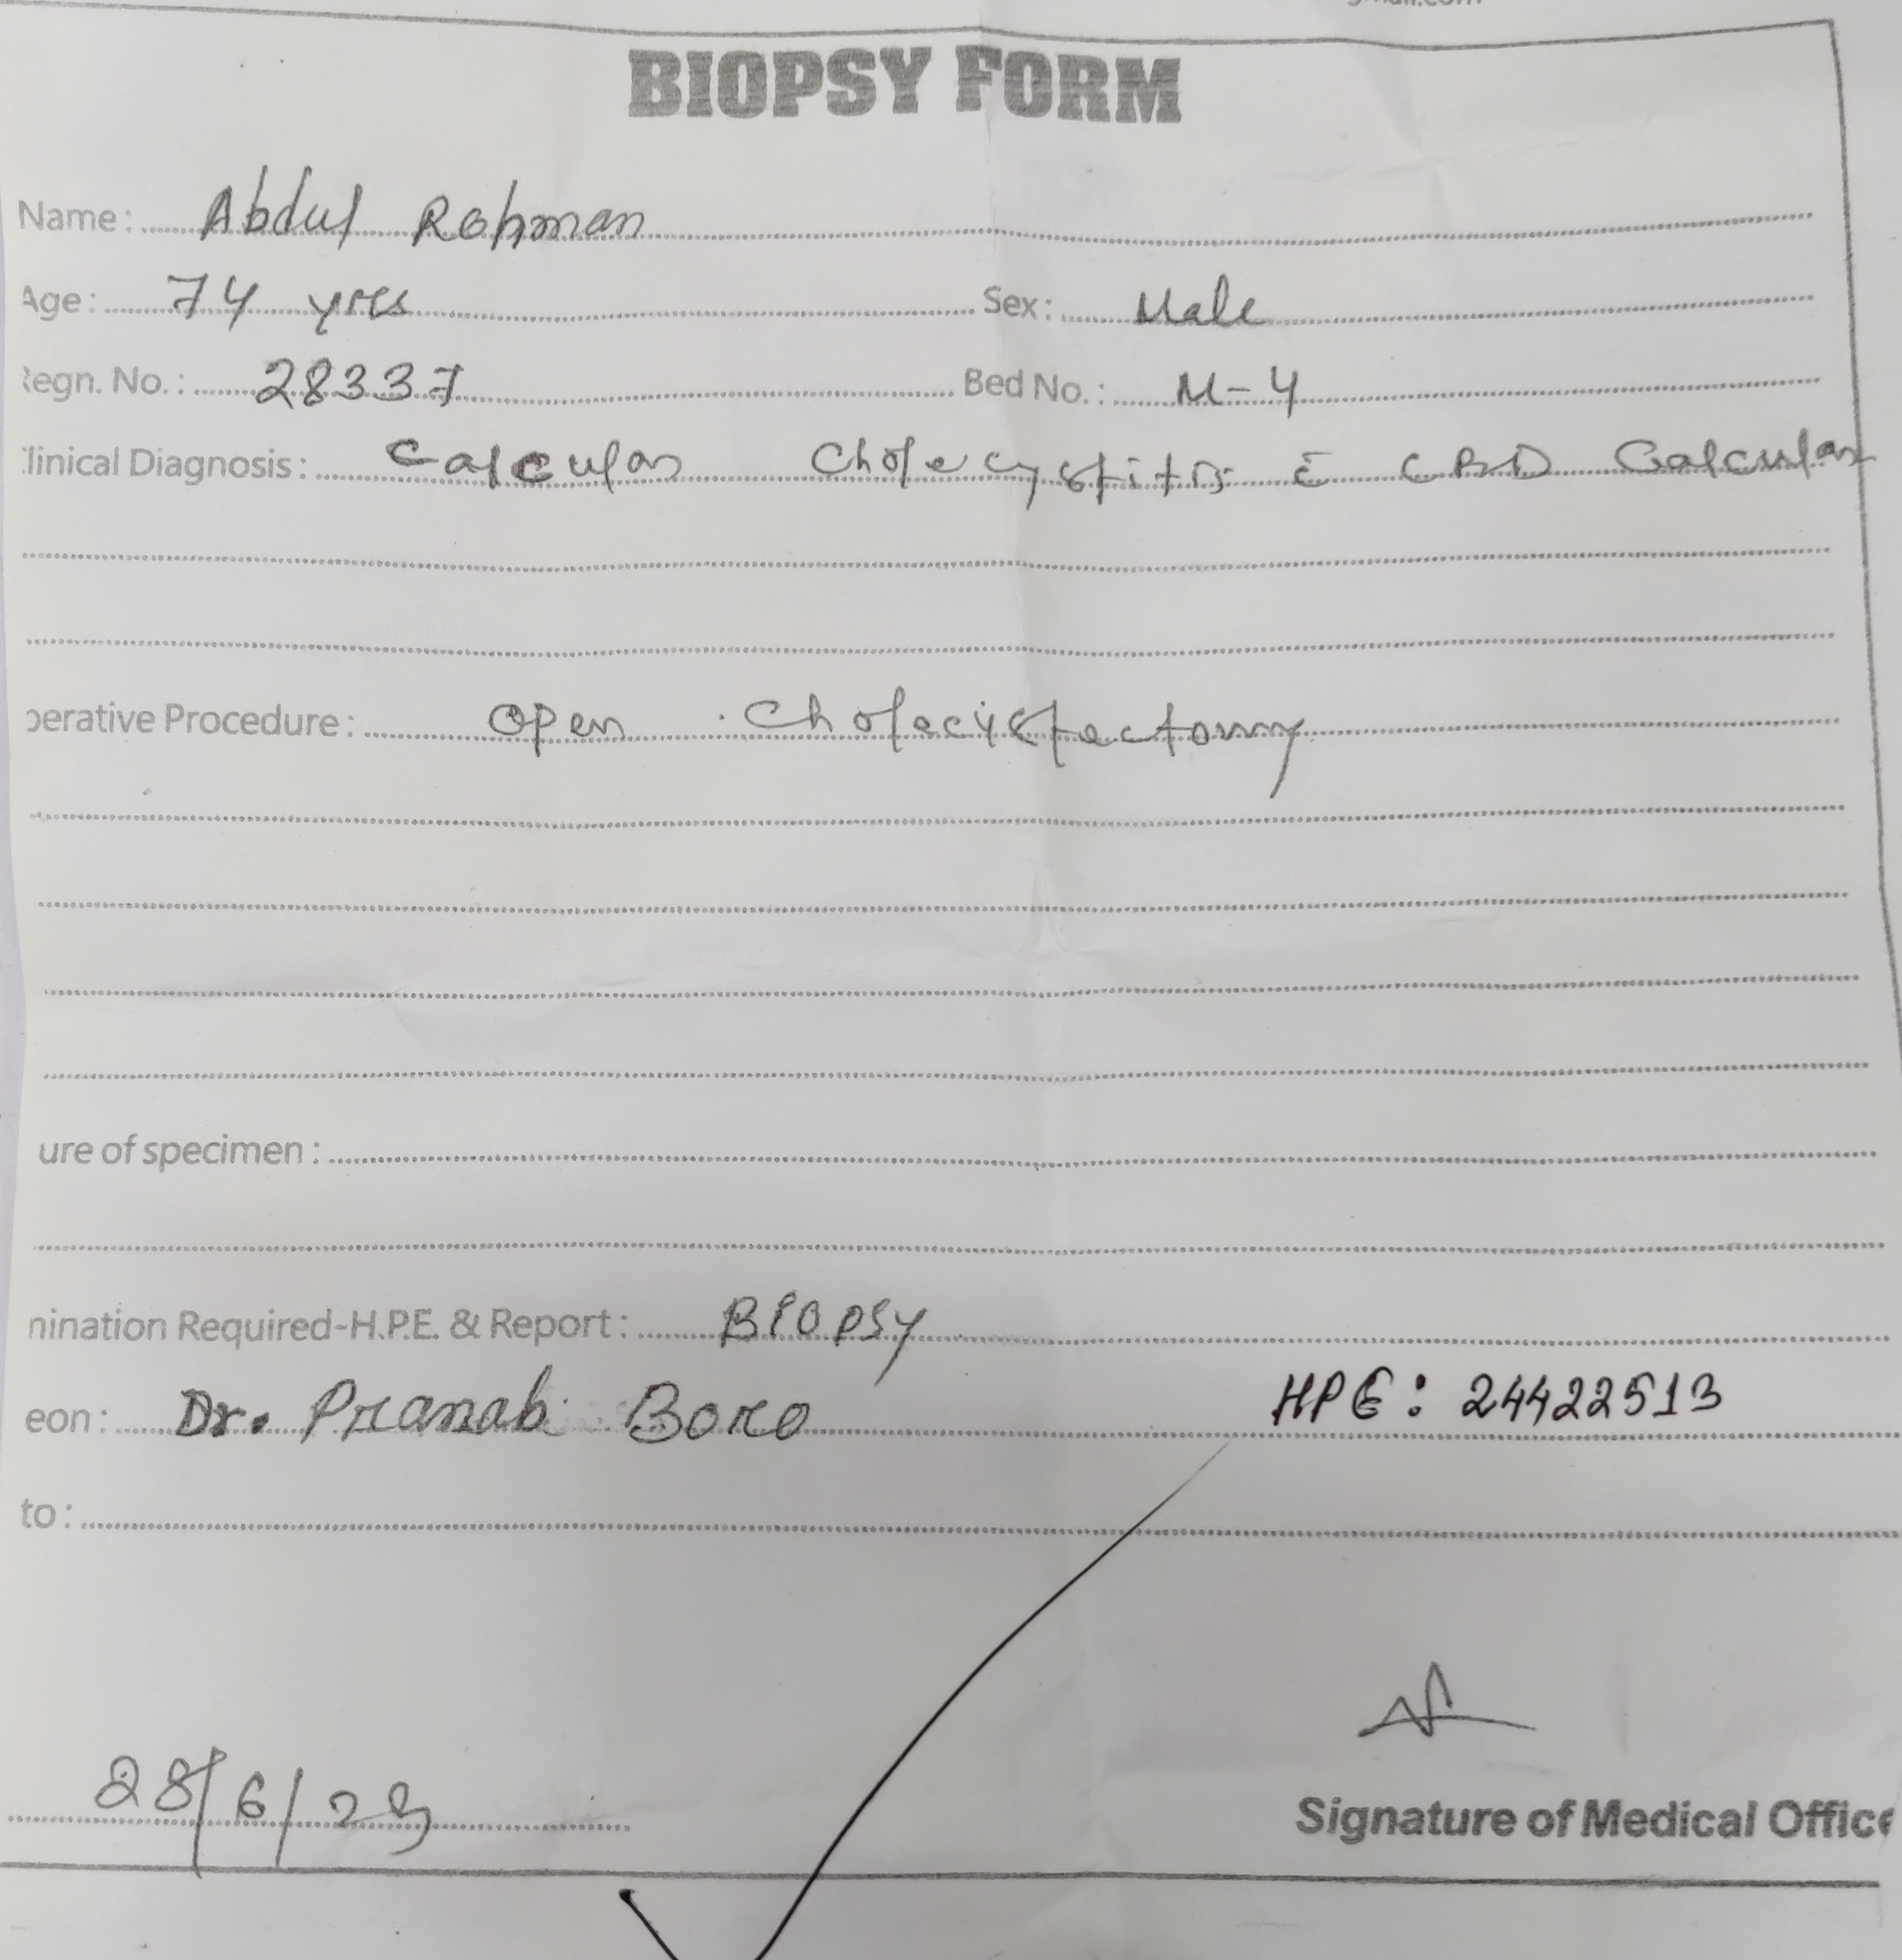 gmail.com
BIOPSY FORM
Name: Abdul Rohman
Age: 74 yrs Sex: Male
Regn. No.: 28337 Bed No.: M-4
linical Diagnosis: Calcular Cholecystitis c̄ CBD Calcular
perative Procedure: Open Cholecystectomy
ure of specimen:
nination Required-H.P.E. & Report: BIOPSY
eon: Dr. Pranab Boro HPE: 24422513
to:
28/6/23
Signature of Medical Office